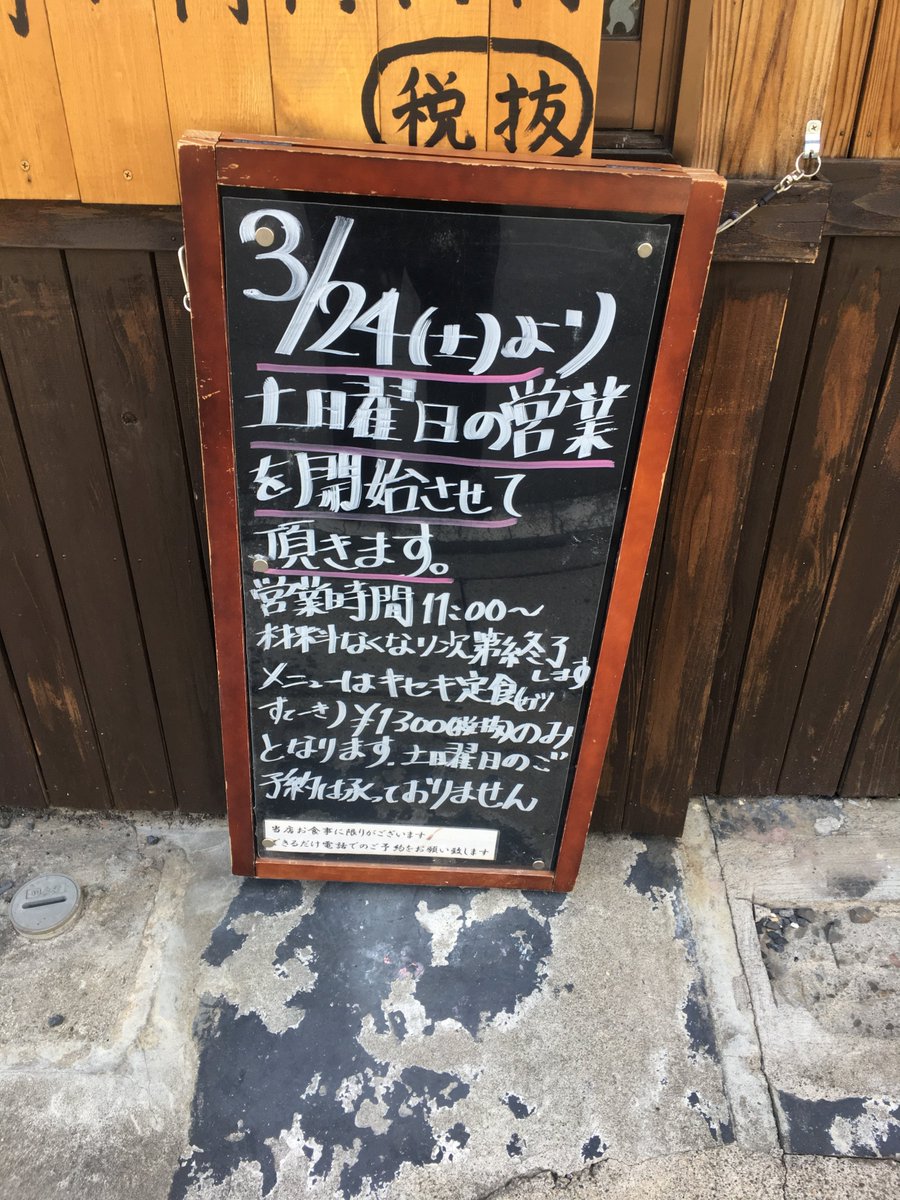 税抜
3/24(土)より
土日曜日の営業
を開始させて
頂きます。
営業時間11:00〜
材料なくなり次第終了
します
メニューはキセキ定食(がツ
すてーき)¥1300(税抜)のみ
となります。土曜日のご
予約は承っておりません
当店お食事に限りがございます
できるだけ電話でのご予約をお願い致します